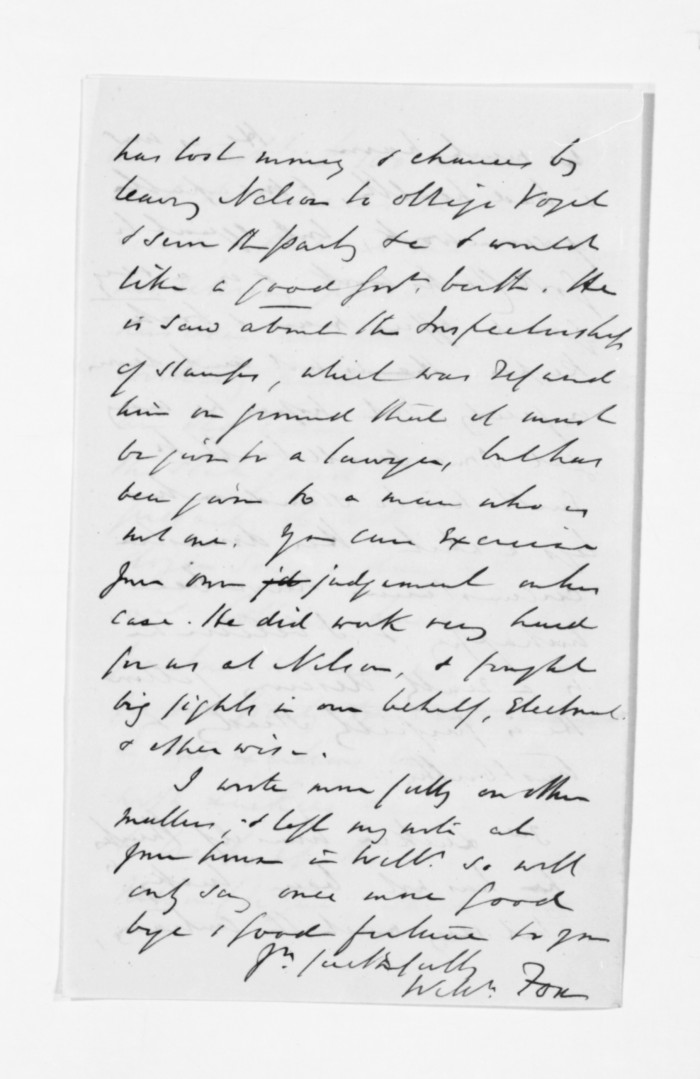 has lost money & chances by
leaving Nelson to oblige Vogel
& serve the party &c & would
like a good Govt. berth. He
is sore about the Inspectorship
of Stamps, which was refused
him on ground that it must
be given to a lawyer, but has
been given to a man who is
not one. You can exercise
your own jd judgement in his
case. He did work very hard
for us at Nelson, & fought
big fights in our behalf, Electoral
& otherwise.
I wrote more fully on other
matters, & left my note at
your house in Welln. so will
only say once more Good
bye & good fortune to you
Yrs. faithfully
Wm. Fox